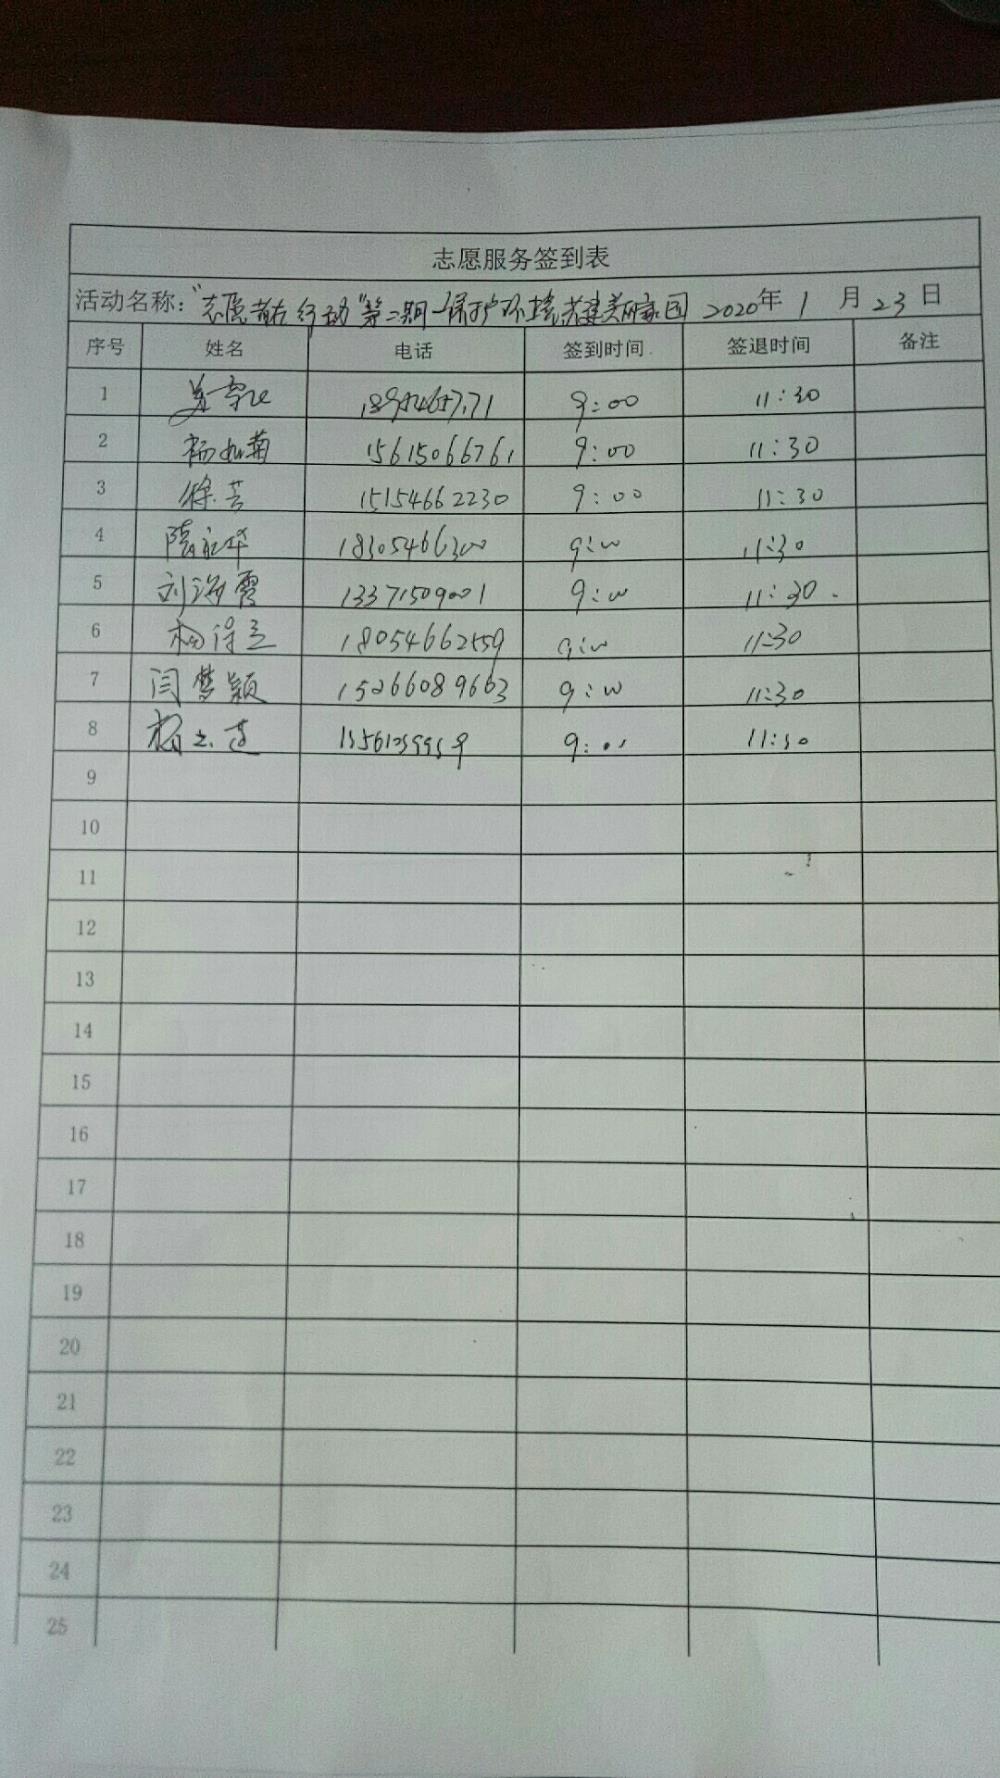 志愿服务签到表
活动名称："志愿者在行动"第二期—保护环境共建美丽家园 2020年 1 月 23 日
序号 姓名 电话 签到时间 签退时间 备注
1 9:00 11:30
2 杨如菊 15615066761 9:00 11:30
3 徐芸 15154662230 9:00 11:30
4 隋永华 18305466300 9:00 11:30
5 刘海霞 13371509001 9:00 11:30
6 18054662559 9:00 11:30
7 闫梦颖 15266089663 9:00 11:30
8 9:00 11:30
9
10
11
12
13
14
15
16
17
18
19
20
21
22
23
24
25